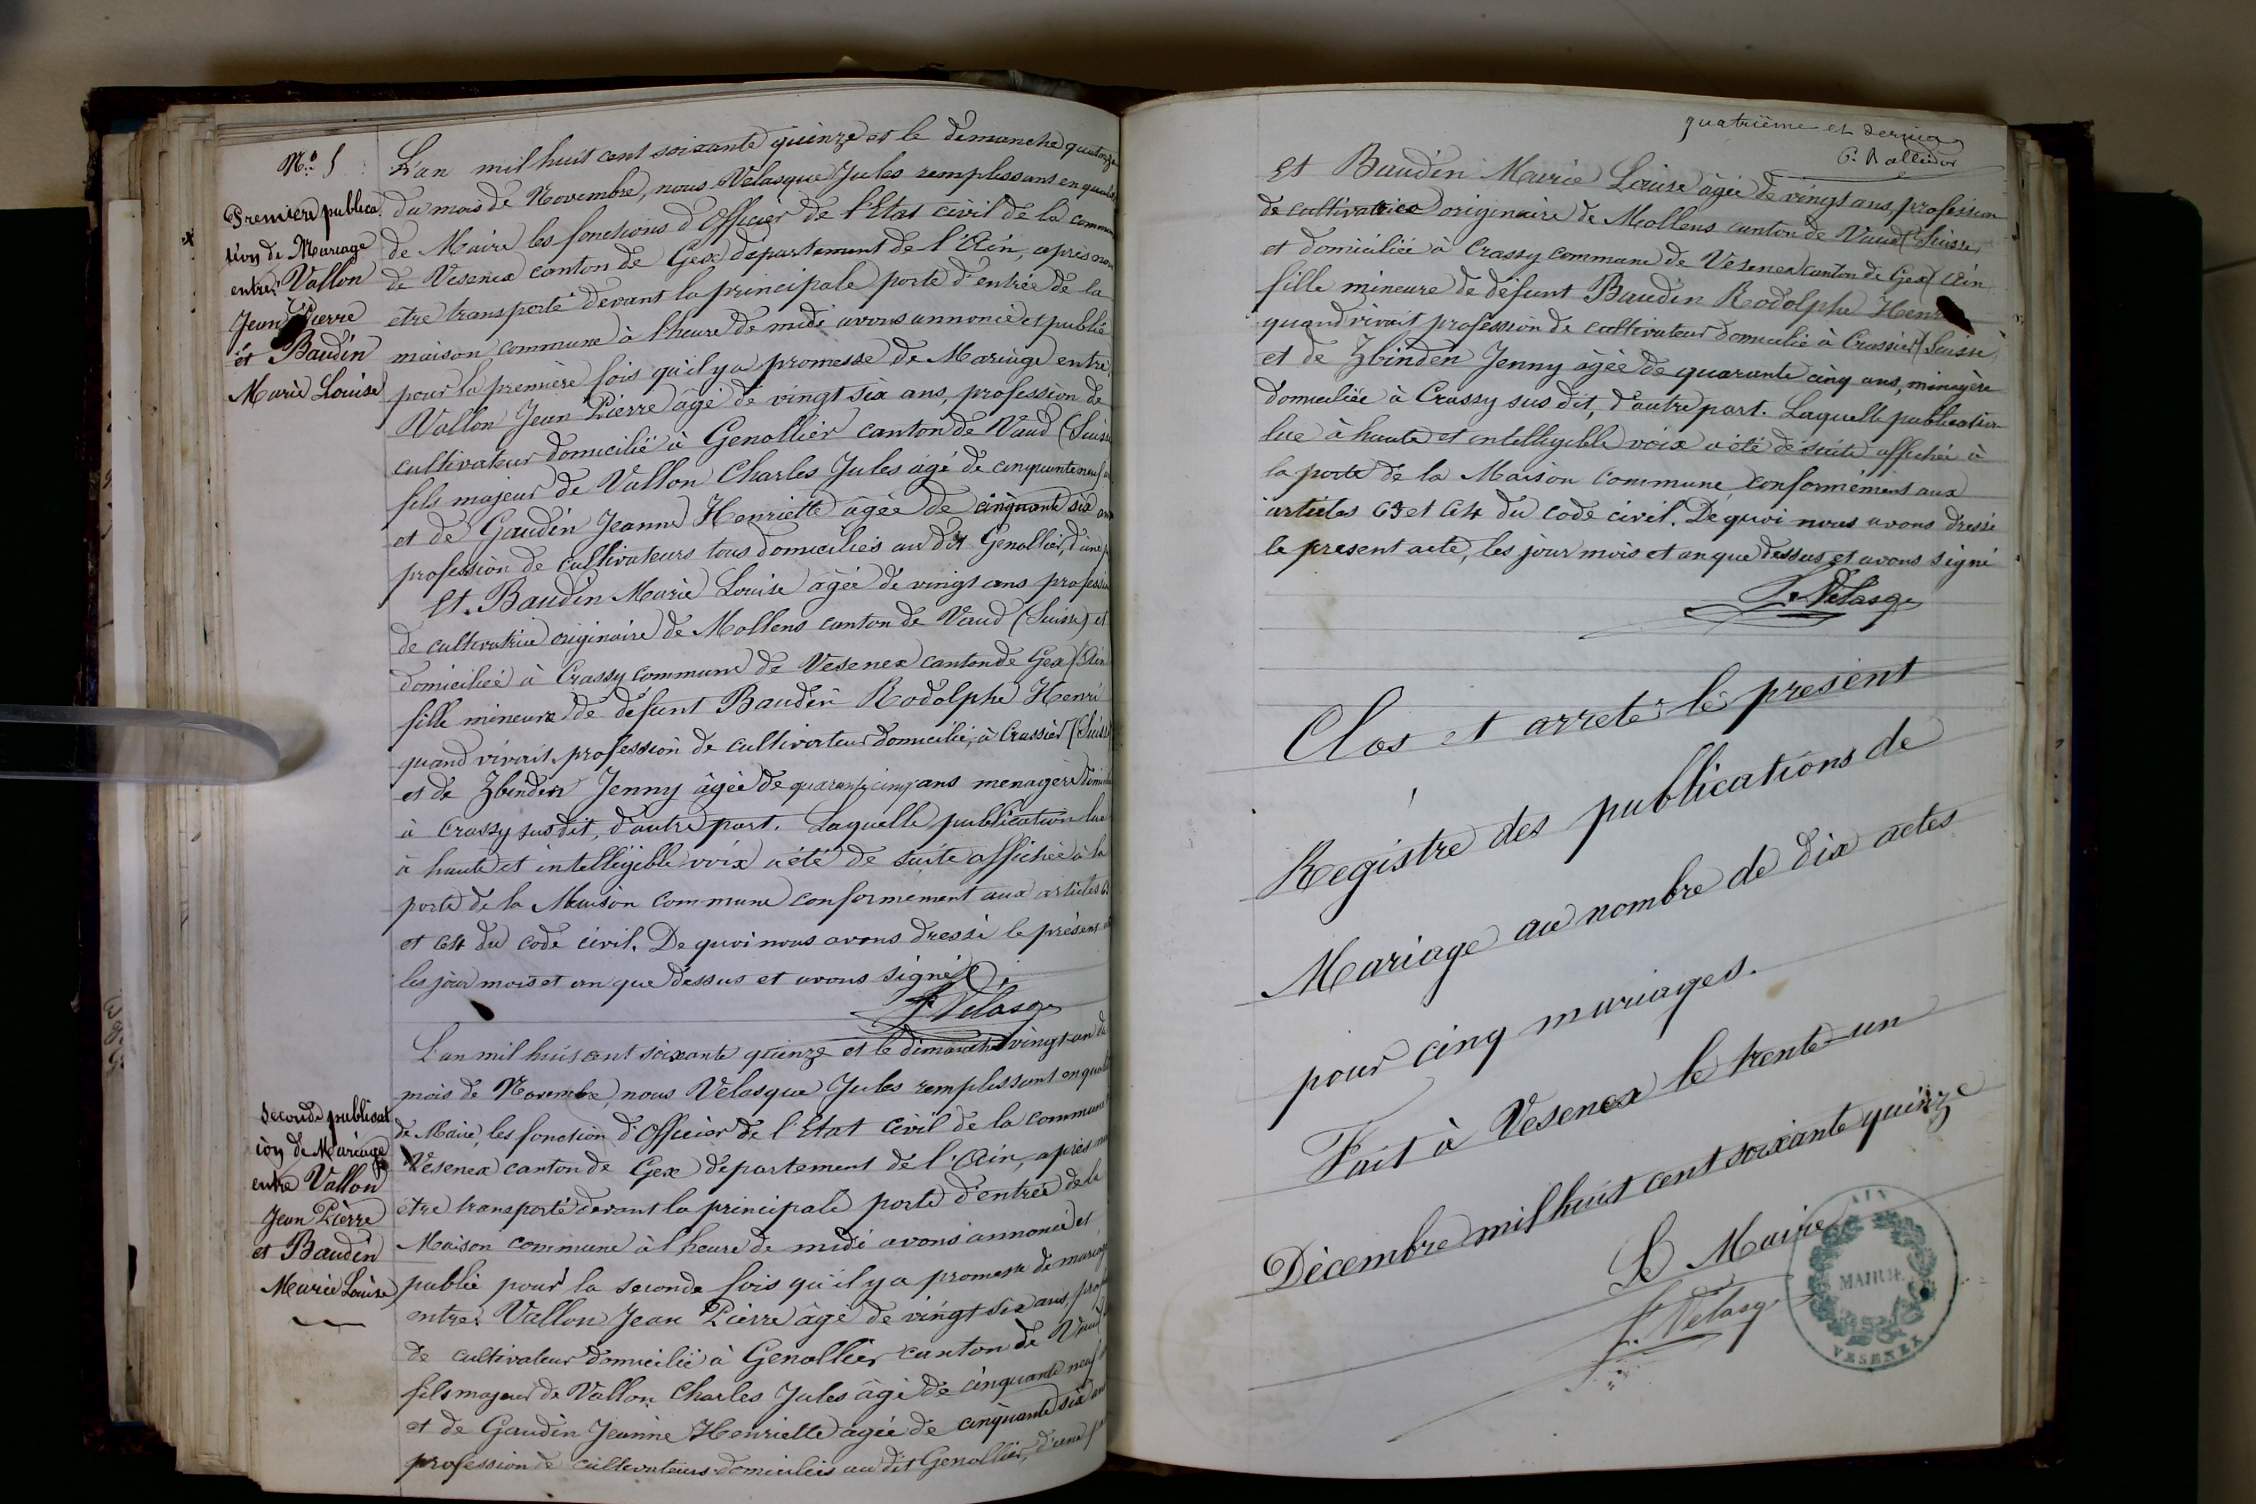 No. 5
Premiere publica
tion de Mariage
entre Vallon
Jean Pierre
et Baudin
Marie Louise
L'an mil huit cent soixante quinze et le dimanche quatorze
du mois de Novembre, nous Velasque Jules remplissans en qualité
de Maire les fonctions d'Officier de l'Etat civil de la commune
de Vesenex canton de Gex departement de l'Ain, apres nous
etre transporté devant la principale porte d'entrée de la
maison commune à l'heure de midi avons annoncé et publié
pour la première fois qu'il y a promesse de Mariage entre
Vallon Jean Pierre âgé de vingt six ans, profession de
cultivateur domicilié à Genollier canton de Vaud (Suisse
fils majeur de Vallon Charles Jules âgé de cinquante neuf
et de Gaudin Jeanne Henriette âgée de cinquante six ans
profession de cultivateurs tous domiciliés au dit Genollier, d'une
Et Baudin Marie Louise âgée de vingt ans profession
de cultivatrice originaire de Mollens canton de Vaud (Suisse) et
domiciliée à Crassy commune de Vesenex canton de Gex (Ain
fille mineure de défunt Baudin Rodolphe Henri
quand vivait profession de cultivateur domicilié, à Crassier (Suisse
et de Zbinden Jenny âgée de quarante cinq ans menagère
à Crassy sus dit, d'autre part. Laquelle publication lue
à haute et intelligible voix a été de suite affichée à la
porte de la Maison commune conformement aux articles 63
et 64 du code civil. De quoi nous avons dressé le présent
les jour mois et an que dessus et avons signé
J. Velasque
Seconde publicat
ion de Mariage
entre Vallon
Jean Pierre
et Baudin
Marie Louise
L'an mil huit cent soixante quinze et le dimanche vingt-un du
mois de Novembre, nous Velasque Jules remplissant en qualité
de Maire, les fonction d'Officier de l'Etat Civil de la commune
Vesenex canton de Gex departement de l'Ain, apres nous
etre transporté devant la principale porte d'entrée de la
Maison commune à l'heure de midi avons annoncé et
publié pour la seconde fois qu'il y a promesse de mariage
entre Vallon Jean Pierre âgé de vingt six ans,
de cultivateur domicilié à Genollier canton de Vaud
fils majeur de Vallon Charles Jules âgé de cinquante neuf
et de Gaudin Jeanne Henriette agée de cinquante six ans
profession de cultivateurs domiciliés au dit Genollier, d'une
quatrième et
et Baudin Marie Louise âgée de vingt ans, profession
de cultivatrice originaire de Mollens canton de Vaud (Suisse,
et domiciliée à Crassy commune de Vesenex canton de Gex (Ain
fille mineure de défunt Baudin Rodolphe Henri
quand vivait profession de cultivateur domicilié à Crassier (Suisse,
et de Zbinden Jenny âgée de quarante cinq ans, ménagère
domiciliée à Crassy sus dit, d'autre part. Laquelle publication
lue à haute et intelligible voix a été de suite affichée à
la porte de la Maison commune conformément aux
articles 63 et 64 du code civil. De quoi nous avons dressé
le present acte, les jour mois et an que dessus et avons signé
J. Velasque
Clos et arreté le present
Registre des publications de
Mariage au nombre de dix actes
pour cinq mariages.
Fait à Vesenex le trente-un
Décembre mil huit cent soixante quinze
Le Maire
J. Velasque
AIN
MAIRIE
VESENEX